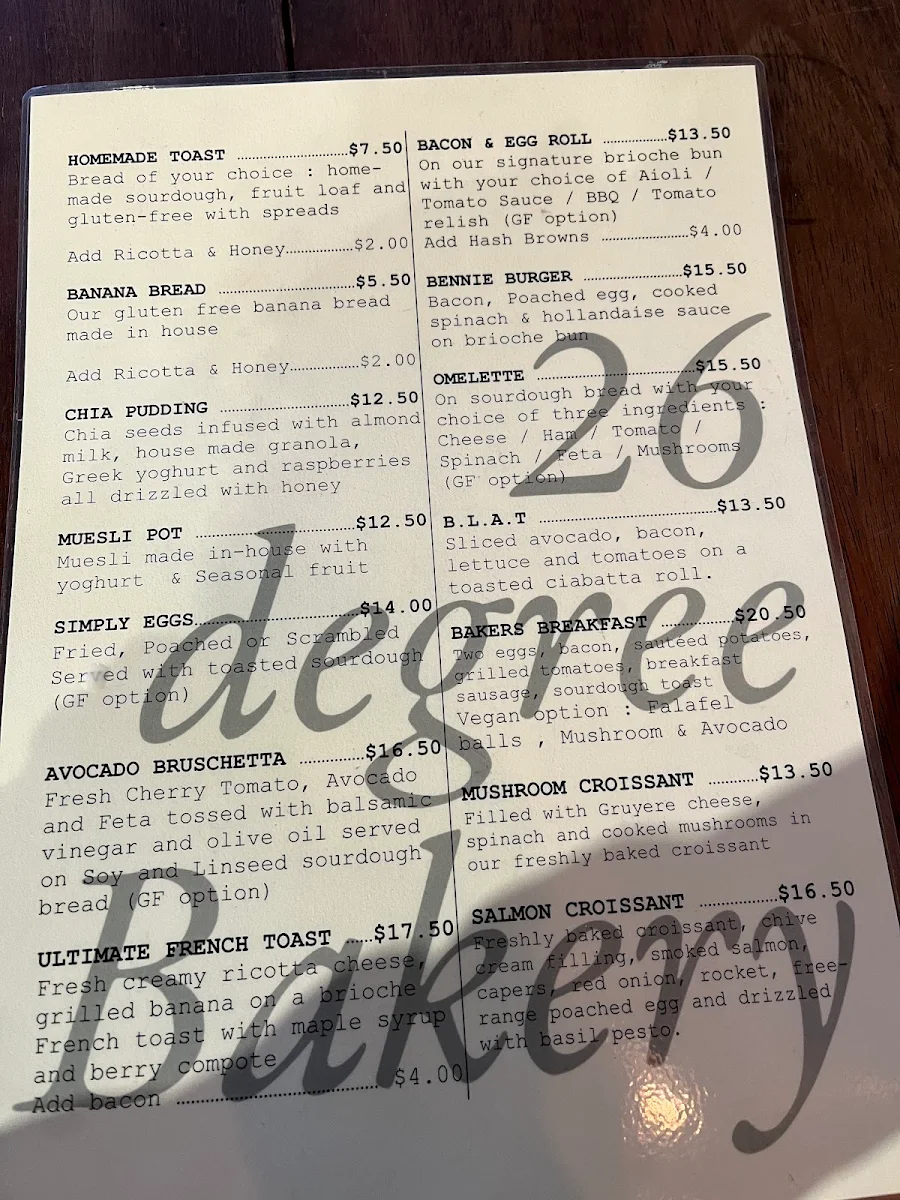 HOMEMADE TOAST ........................$7.50
Bread of your choice : home-
made sourdough, fruit loaf and
gluten-free with spreads
Add Ricotta & Honey...............$2.00
BANANA BREAD ..............................$5.50
Our gluten free banana bread
made in house
Add Ricotta & Honey...............$2.00
CHIA PUDDING ............................$12.50
Chia seeds infused with almond
milk, house made granola,
Greek yoghurt and raspberries
all drizzled with honey
MUESLI POT ..................................$12.50
Muesli made in-house with
yoghurt & Seasonal fruit
SIMPLY EGGS...................................$14.00
Fried, Poached or Scrambled
Served with toasted sourdough
(GF option)
AVOCADO BRUSCHETTA .............$16.50
Fresh Cherry Tomato, Avocado
and Feta tossed with balsamic
vinegar and olive oil served
on Soy and Linseed sourdough
bread (GF option)
ULTIMATE FRENCH TOAST .....$17.50
Fresh creamy ricotta cheese,
grilled banana on a brioche
French toast with maple syrup
and berry compote
Add bacon ........................................ $4.00
BACON & EGG ROLL ..............$13.50
On our signature brioche bun
with your choice of Aioli /
Tomato Sauce / BBQ / Tomato
relish (GF option)
Add Hash Browns ...................$4.00
BENNIE BURGER ......................$15.50
Bacon, Poached egg, cooked
spinach & hollandaise sauce
on brioche bun
OMELETTE ..................................$15.50
On sourdough bread with your
choice of three ingredients :
Cheese / Ham / Tomato /
Spinach / Feta / Mushrooms
(GF option)
B.L.A.T .......................................$13.50
Sliced avocado, bacon,
lettuce and tomatoes on a
toasted ciabatta roll.
BAKERS BREAKFAST ...............$20.50
Two eggs, bacon, sauteed potatoes,
grilled tomatoes, breakfast
sausage, sourdough toast
Vegan option : Falafel
balls , Mushroom & Avocado
MUSHROOM CROISSANT ..........$13.50
Filled with Gruyere cheese,
spinach and cooked mushrooms in
our freshly baked croissant
SALMON CROISSANT ................$16.50
Freshly baked croissant, chive
cream filling, smoked salmon,
capers, red onion, rocket, free-
range poached egg and drizzled
with basil pesto.
26
degree
Bakery